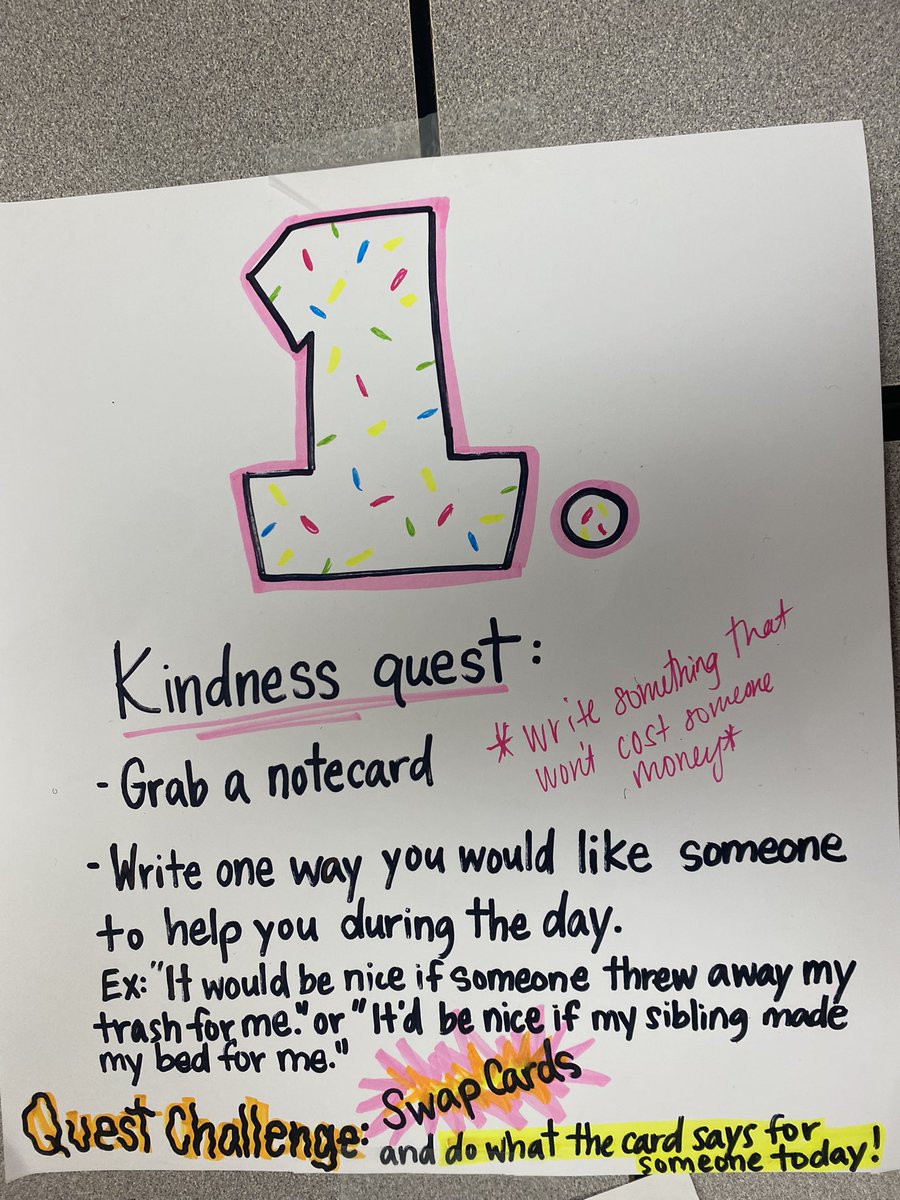 1.
Kindness quest:
*write something that
won't cost someone
money*
- Grab a notecard
- Write one way you would like someone
to help you during the day.
Ex: "It would be nice if someone threw away my
trash for me." or "It'd be nice if my sibling made
my bed for me."
Quest Challenge: Swap Cards
and do what the card says for
someone today!